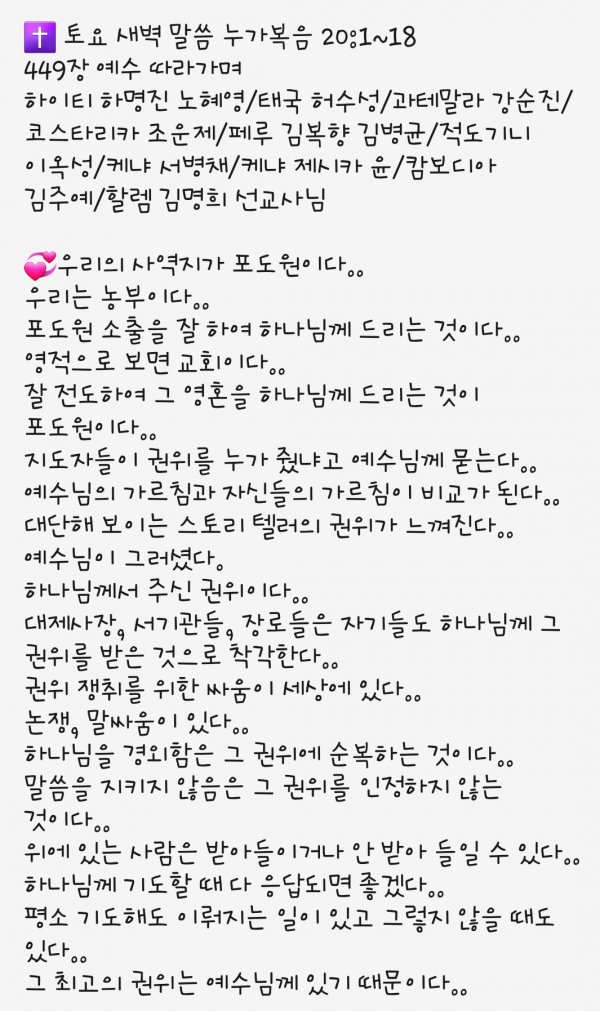 ✝️ 토요 새벽 말씀 누가복음 20:1~18
449장 예수 따라가며
하이티 하명진 노혜영/태국 허수성/과테말라 강순진/
코스타리카 조운제/페루 김복향 김병균/적도기니
이옥성/케냐 서병채/케냐 제시카 윤/캄보디아
김주예/할렘 김명희 선교사님

💞우리의 사역지가 포도원이다。。
우리는 농부이다。。
포도원 소출을 잘 하여 하나님께 드리는 것이다。。
영적으로 보면 교회이다。。
잘 전도하여 그 영혼을 하나님께 드리는 것이
포도원이다。。
지도자들이 권위를 누가 줬냐고 예수님께 묻는다。。
예수님의 가르침과 자신들의 가르침이 비교가 된다。。
대단해 보이는 스토리 텔러의 권위가 느껴진다。。
예수님이 그러셨다。
하나님께서 주신 권위이다。。
대제사장, 서기관들, 장로들은 자기들도 하나님께 그
권위를 받은 것으로 착각한다。。
권위 쟁취를 위한 싸움이 세상에 있다。。
논쟁, 말싸움이 있다。。
하나님을 경외함은 그 권위에 순복하는 것이다。。
말씀을 지키지 않음은 그 권위를 인정하지 않는
것이다。。
위에 있는 사람은 받아들이거나 안 받아 들일 수 있다。。
하나님께 기도할 때 다 응답되면 좋겠다。。
평소 기도해도 이뤄지는 일이 있고 그렇지 않을 때도
있다。。
그 최고의 권위는 예수님께 있기 때문이다。。